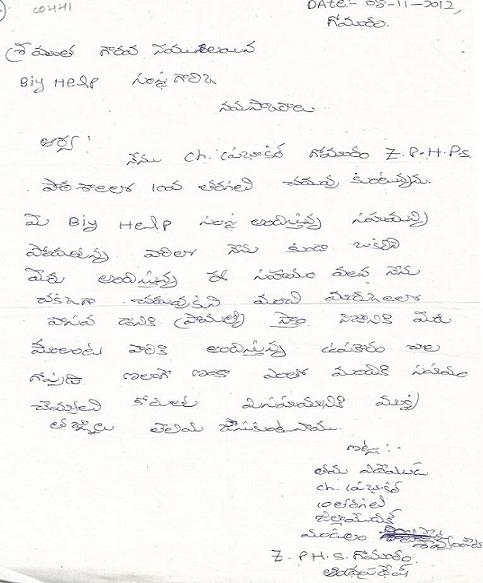 DATE:- 05-11-2012,
గోమారం.
శ్రీయుత గౌరవ నీయులైన
Biy Help సంస్థ గారికి
నమస్కారాలు
ఆర్య!
నేను Ch. ప్రభాకర్ గోమారం Z.P.H.P.S
పాఠశాలలో 10వ తరగతి చదువు కుంటున్నను.
మీ Biy Help సంస్థ అందిస్తున్న సహాయాన్ని
వారిలో నేను కూడా ఒకడిని
మీరు అందిస్తున్న ఈ సహాయం వలన నేను
చక్కగా చదువుకుని మంచి మార్కులతో
మీరు
వారికి అందిస్తున్న ఉపకారం చాల
గొప్పది ఇలాగే ఇంకా ఎంతో మందికి సహాయం
చెయ్యాలని కోరుతూ మీ సహాయానికి
తెలియ జేసుకుంటున్నాను.
ఇట్లు:-
తమ విధేయుడు
Ch. ప్రభాకర్
10 తరగతి
మండలం
Z.P.H.S. గోమారం.
ఆంధ్రప్రదేశ్